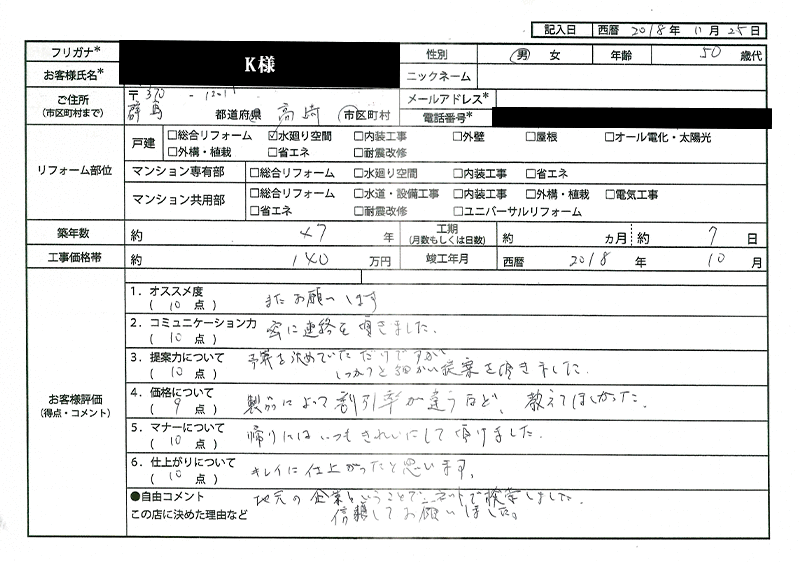 記入日 西暦 2018年 11月 25日
フリガナ* K様 性別 男 女 年齢 50 歳代
お客様氏名* ニックネーム
ご住所 〒370 - 1201 メールアドレス*
(市区町村まで) 群馬 都道府県 高崎 市区町村 電話番号*
リフォーム部位 戸建 □総合リフォーム ☑水廻り空間 □内装工事 □外壁 □屋根 □オール電化・太陽光
□外構・植栽 □省エネ □耐震改修
マンション専有部 □総合リフォーム □水廻り空間 □内装工事 □省エネ
マンション共用部 □総合リフォーム □水道・設備工事 □内装工事 □外構・植栽 □電気工事
□省エネ □耐震改修 □ユニバーサルリフォーム
築年数 約 47 年 工期(月数もしくは日数) 約 ヵ月 約 7 日
工事価格帯 約 140 万円 竣工年月 西暦 2018 年 10 月
お客様評価(得点・コメント)
1．オススメ度
( 10 点 ) またお願いします
2．コミュニケーション力
( 10 点 ) 密に連絡を頂きました.
3．提案力について 予算を決めていただけですが
( 10 点 ) しっかりと細かい提案を頂きました.
4．価格について
( 9 点 ) 製品によって割引率が違うなど、教えてほしかった.
5．マナーについて
( 10 点 ) 帰りにはいつもきれいにして頂けました.
6．仕上がりについて
( 10 点 ) キレイに仕上がったと思います.
●自由コメント 地元の企業ということでネットで検索しました.
この店に決めた理由など 信頼してお願いしました。